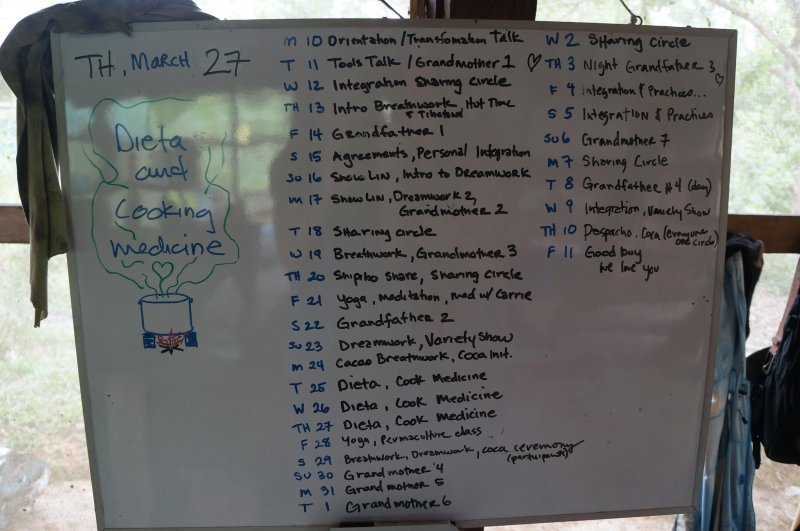 TH, March 27
Dieta
and
Cooking
medicine
M 10 Orientation/Transfomation Talk
T 11 Tools Talk / Grandmother 1
W 12 Integration Sharing Circle
TH 13 Intro Breathwork, Hut Time
F 14 Grandfather 1
S 15 Agreements, Personal Integration
SU 16 Show Lin, Intro to Dreamwork
M 17 Show Lin, Dreamwork 2,
Grandmother 2
T 18 Sharing circle
W 19 Breathwork, Grandmother 3
TH 20 Shipibo Share, Sharing Circle
F 21 Yoga, Meditation, Med w/ Carrie
S 22 Grandfather 2
SU 23 Dreamwork, Variety Show
M 24 Cacao Breathwork, Coca Init.
T 25 Dieta, Cook Medicine
W 26 Dieta, Cook Medicine
TH 27 Dieta, Cook Medicine
F 28 Yoga, Permaculture class
S 29 Breathwork, Dreamwork, coca ceremony
(participants)
SU 30 Grandmother 4
M 31 Grandmother 5
T 1 Grandmother 6
W 2 Sharing Circle
TH 3 Night Grandfather 3
F 4 Integration & Practices...
S 5 Integration & Practices
SU 6 Grandmother 7
M 7 Sharing Circle
T 8 Grandfather #4 (day)
W 9 Integration, Variety Show
TH 10 Despacho, Coca (everyone
one circle)
F 11 Good buy
we love you